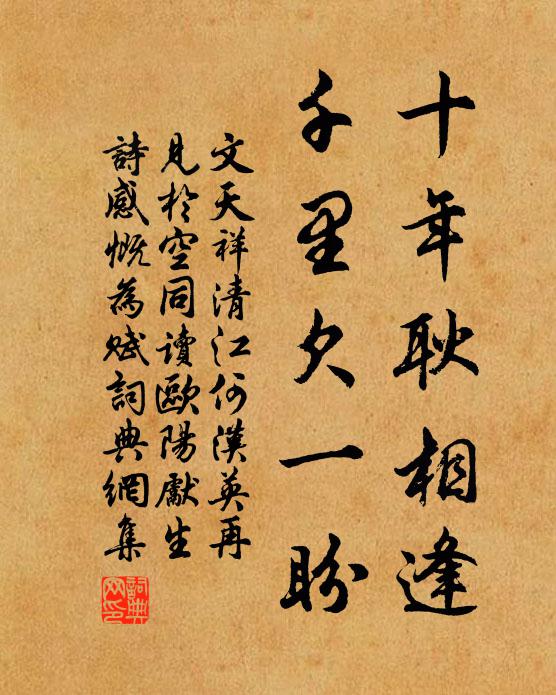 十年耿相逢
千里欠一盼
文天祥清江何漢英再
見於空同讀歐陽獻生
詩感慨為賦詞典網集
詞典網印